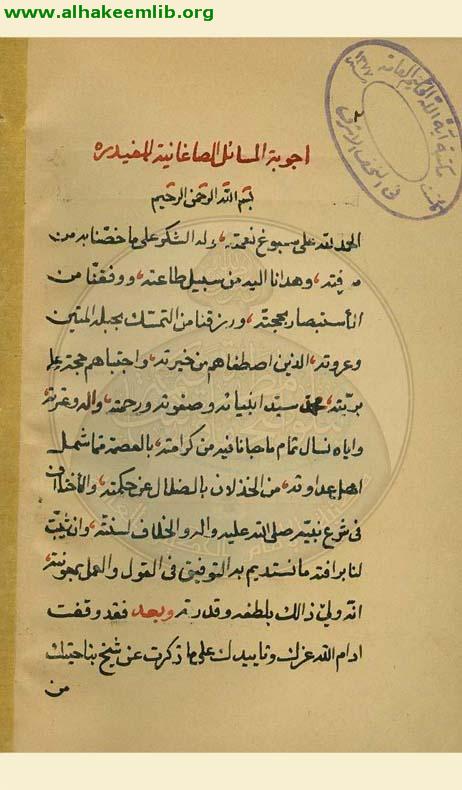 www.alhakeemlib.org
٢
اجوبة المسائل الصاغانية للمفيد ره
بسم الله الرحمن الرحيم
الحمد لله على سبوغ نعمته، وله الشكر على ما خصّنا به من
معرفته، وهدانا اليه من سبيل طاعته، ووفقنا من
الأستبصار بحجته، ورزقنا من التمسك بحبله المتين
وعروته، الذين اصطفاهم من خيرته، واجتباهم حجة على
بريّته، محمد سيّد انبيائه وصفوته ورحمته، واله وعترته
واياه نسال تمام ما حبانا فيه من كرامته، بالعصمة مما شمل
اهل عداوته، من الخذلان بالضلال عن حكمته، والأختلاف
فى شرع نبيّه صلى الله عليه واله والخلاف لسنّته، وان يثبّت
لنا برافته ما نستديم به التوفيق فى القول والعمل بمعونته،
انه ولىّ ذالك بلطفه وقدرته، وبعد فقد وقفت
ادام الله عزك وتاييدك على ما ذكرت عن شيخ بناحيتك
من